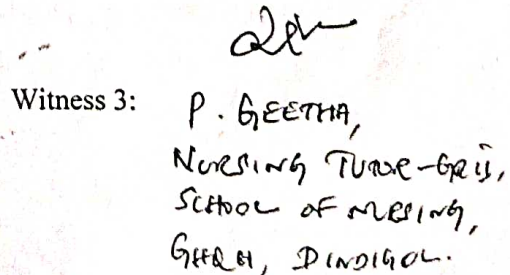 Witness 3: P. GEETHA,
NURSING TUTOR-GR II,
SCHOOL OF NURSING,
GHQH, DINDIGUL.